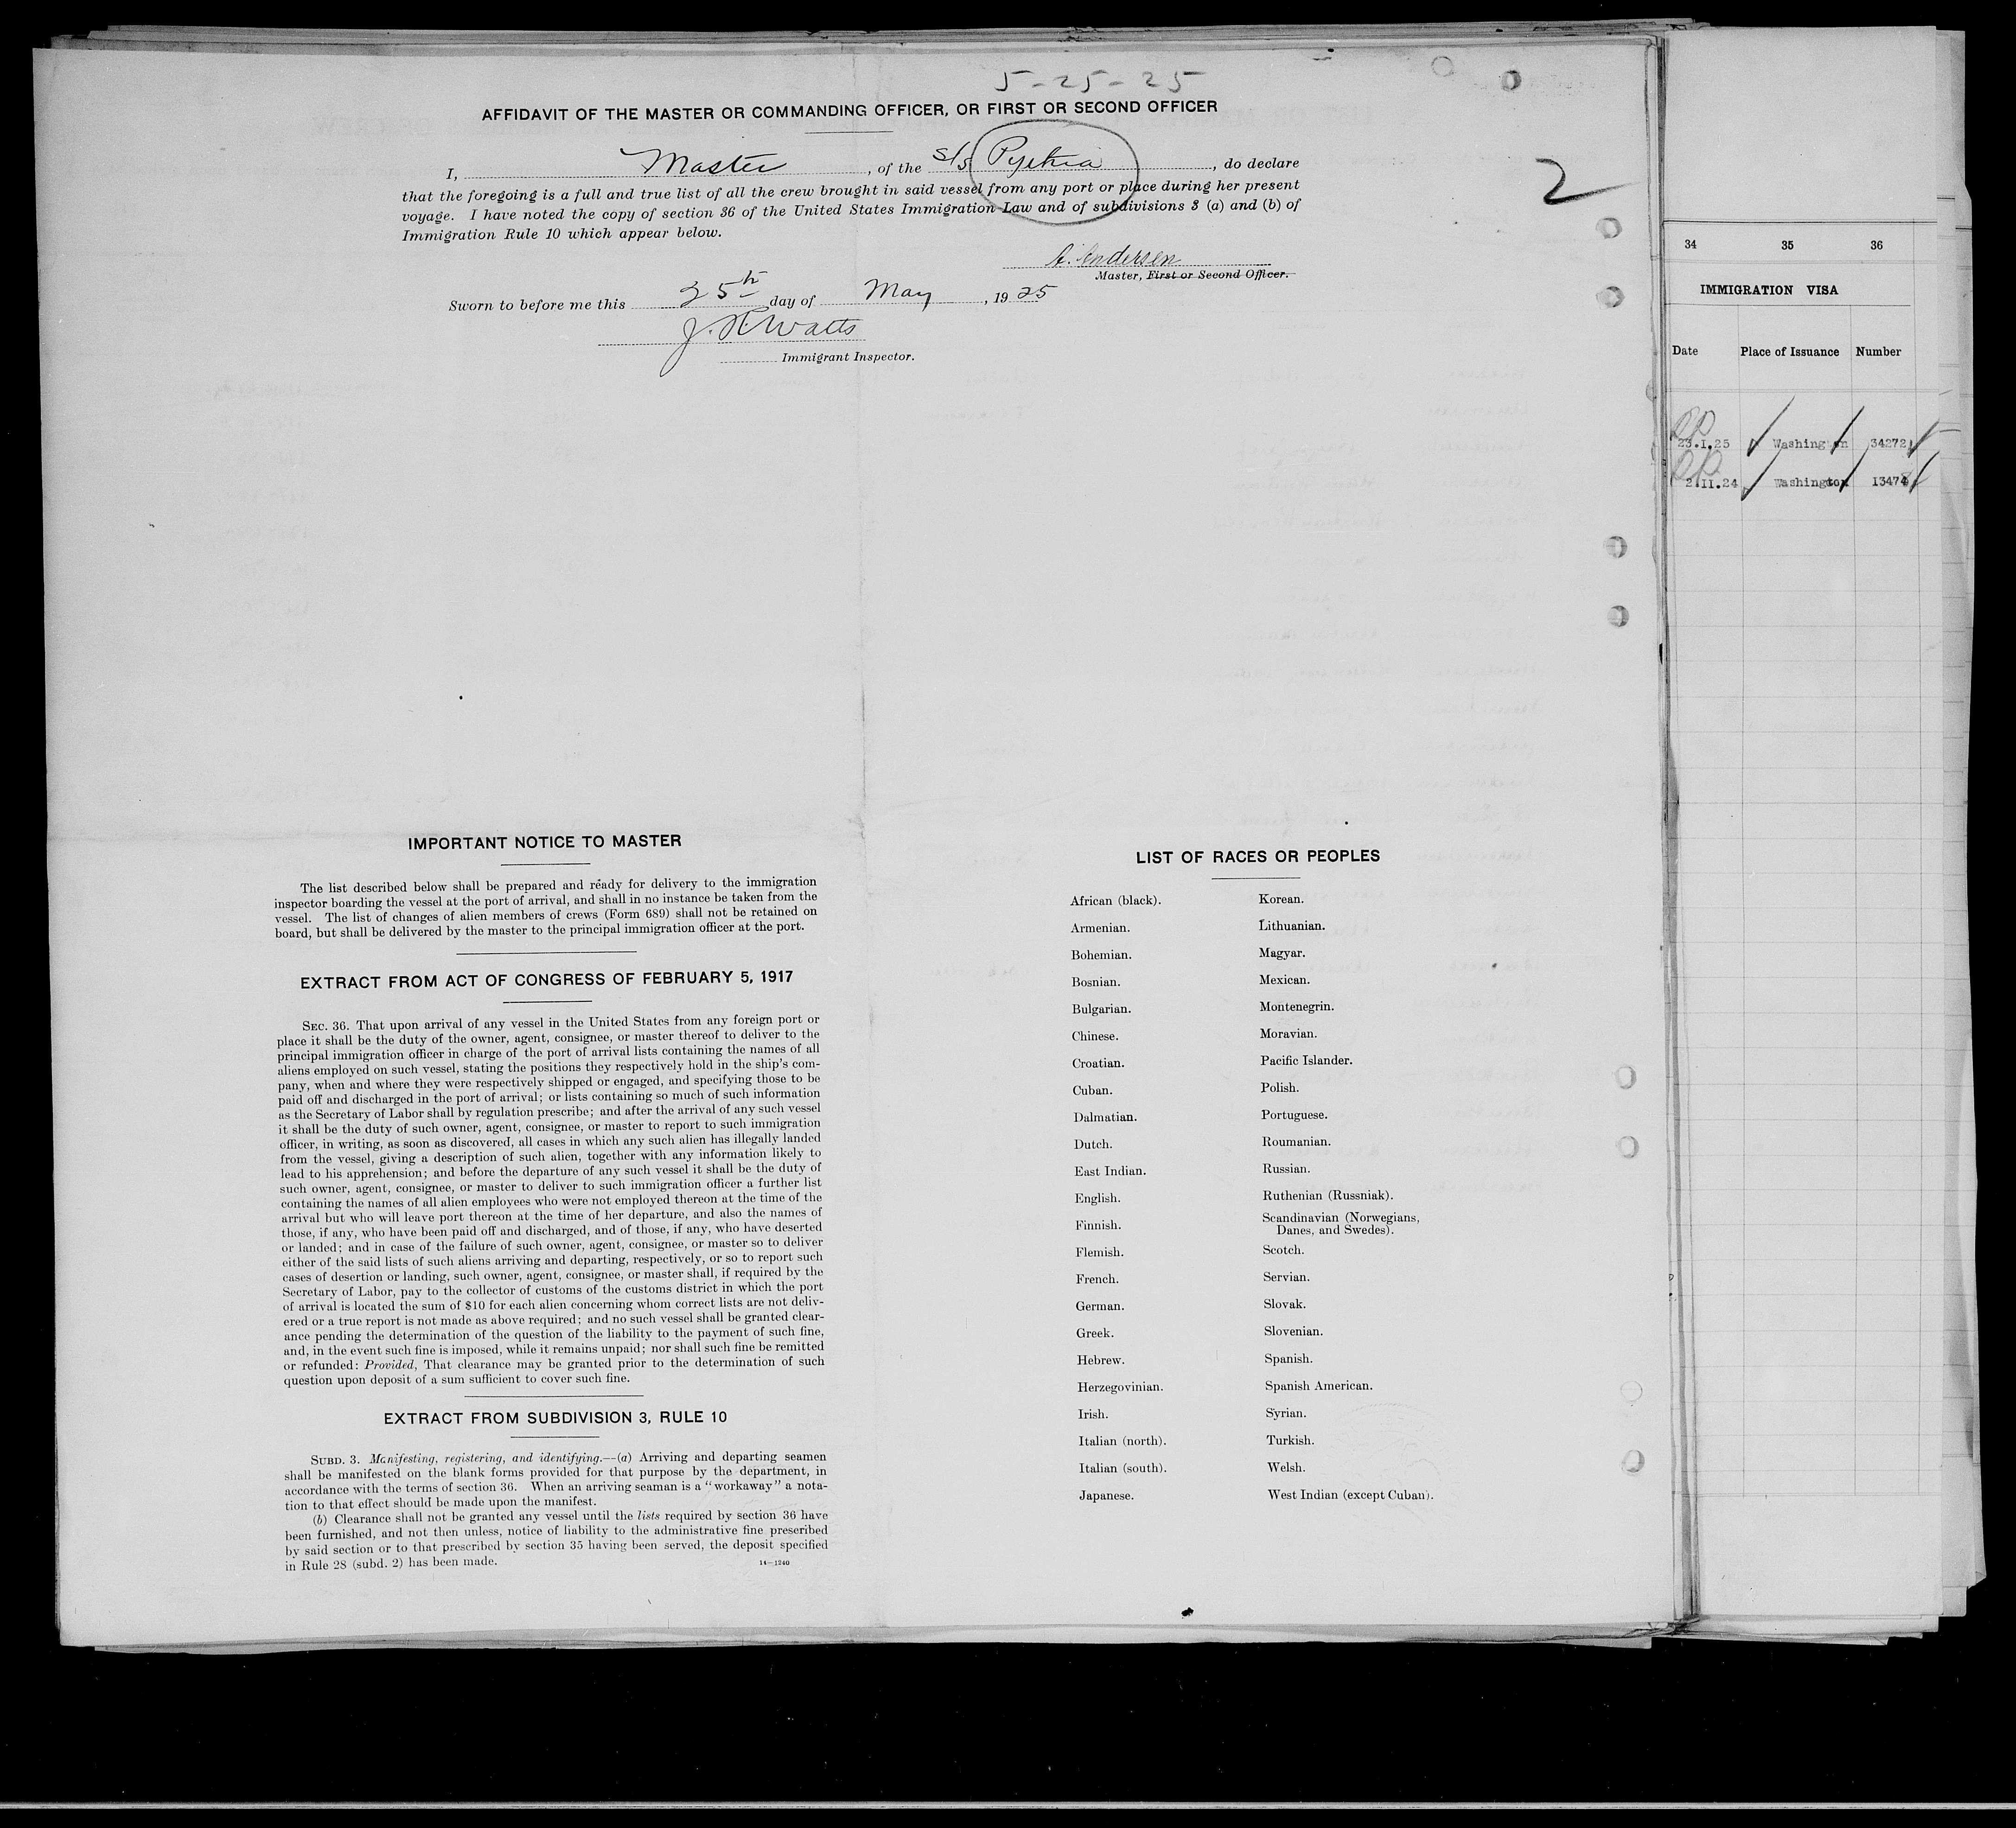 5-25-25
AFFIDAVIT OF THE MASTER OR COMMANDING OFFICER, OR FIRST OR SECOND OFFICER
I, Master, of the S/S, do declare
that the foregoing is a full and true list of all the crew brought in said vessel from any port or place during her present
voyage. I have noted the copy of section 36 of the United States Immigration Law and of subdivisions 3 (a) and (b) of
Immigration Rule 10 which appear below.
2
Andersen
Master, First or Second Officer.
Sworn to before me this 25th day of May, 1925
Watts
Immigrant Inspector.
IMPORTANT NOTICE TO MASTER
The list described below shall be prepared and ready for delivery to the immigration
inspector boarding the vessel at the port of arrival, and shall in no instance be taken from the
vessel. The list of changes of alien members of crews (Form 689) shall not be retained on
board, but shall be delivered by the master to the principal immigration officer at the port.
EXTRACT FROM ACT OF CONGRESS OF FEBRUARY 5, 1917
SEC. 36. That upon arrival of any vessel in the United States from any foreign port or
place it shall be the duty of the owner, agent, consignee, or master thereof to deliver to the
principal immigration officer in charge of the port of arrival lists containing the names of all
aliens employed on such vessel, stating the positions they respectively hold in the ship's com-
pany, when and where they were respectively shipped or engaged, and specifying those to be
paid off and discharged in the port of arrival; or lists containing so much of such information
as the Secretary of Labor shall by regulation prescribe; and after the arrival of any such vessel
it shall be the duty of such owner, agent, consignee, or master to report to such immigration
officer, in writing, as soon as discovered, all cases in which any such alien has illegally landed
from the vessel, giving a description of such alien, together with any information likely to
lead to his apprehension; and before the departure of any such vessel it shall be the duty of
such owner, agent, consignee, or master to deliver to such immigration officer a further list
containing the names of all alien employees who were not employed thereon at the time of the
arrival but who will leave port thereon at the time of her departure, and also the names of
those, if any, who have been paid off and discharged, and of those, if any, who have deserted
or landed; and in case of the failure of such owner, agent, consignee, or master so to deliver
either of the said lists of such aliens arriving and departing, respectively, or so to report such
cases of desertion or landing, such owner, agent, consignee, or master shall, if required by the
Secretary of Labor, pay to the collector of customs of the customs district in which the port
of arrival is located the sum of $10 for each alien concerning whom correct lists are not deliv-
ered or a true report is not made as above required; and no such vessel shall be granted clear-
ance pending the determination of the question of the liability to the payment of such fine,
and, in the event such fine is imposed, while it remains unpaid; nor shall such fine be remitted
or refunded: Provided, That clearance may be granted prior to the determination of such
question upon deposit of a sum sufficient to cover such fine.
EXTRACT FROM SUBDIVISION 3, RULE 10
SUBD. 3. Manifesting, registering, and identifying.—(a) Arriving and departing seamen
shall be manifested on the blank forms provided for that purpose by the department, in
accordance with the terms of section 36. When an arriving seaman is a "workaway" a nota-
tion to that effect should be made upon the manifest.
(b) Clearance shall not be granted any vessel until the lists required by section 36 have
been furnished, and not then unless, notice of liability to the administrative fine prescribed
by said section or to that prescribed by section 35 having been served, the deposit specified
in Rule 28 (subd. 2) has been made.
14—1240
LIST OF RACES OR PEOPLES
African (black).
Armenian.
Bohemian.
Bosnian.
Bulgarian.
Chinese.
Croatian.
Cuban.
Dalmatian.
Dutch.
East Indian.
English.
Finnish.
Flemish.
French.
German.
Greek.
Hebrew.
Herzegovinian.
Irish.
Italian (north).
Italian (south).
Japanese.
Korean.
Lithuanian.
Magyar.
Mexican.
Montenegrin.
Moravian.
Pacific Islander.
Polish.
Portuguese.
Roumanian.
Russian.
Ruthenian (Russniak).
Scandinavian (Norwegians,
Danes, and Swedes).
Scotch.
Servian.
Slovak.
Slovenian.
Spanish.
Spanish American.
Syrian.
Turkish.
Welsh.
West Indian (except Cuban).
34 35 36
IMMIGRATION VISA
Date Place of Issuance Number
23.I.25 Washington 34272
2.II.24 Washington